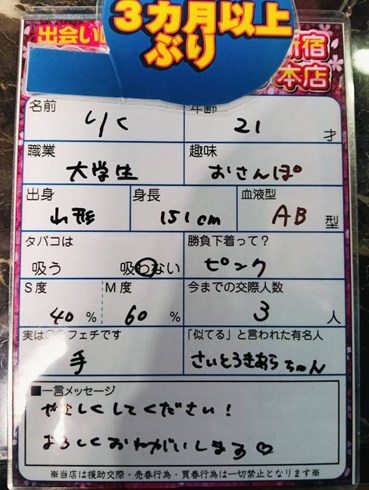 3カ月以上
ぶり
出会い
新宿
本店
名前
りく
年齢
21
才
職業
大学生
趣味
おさんぽ
出身
山形
身長
151cm
血液型
AB 型
タバコは
吸う 吸わない
勝負下着って?
ピンク
S度
40 %
M度
60 %
今までの交際人数
3 人
実は○○フェチです
手
「似てる」と言われた有名人
さいとうきあらちゃん
■一言メッセージ
やさしくしてください!
よろしくおねがいします♡
※当店は援助交際・売春行為・買春行為は一切禁止となります※